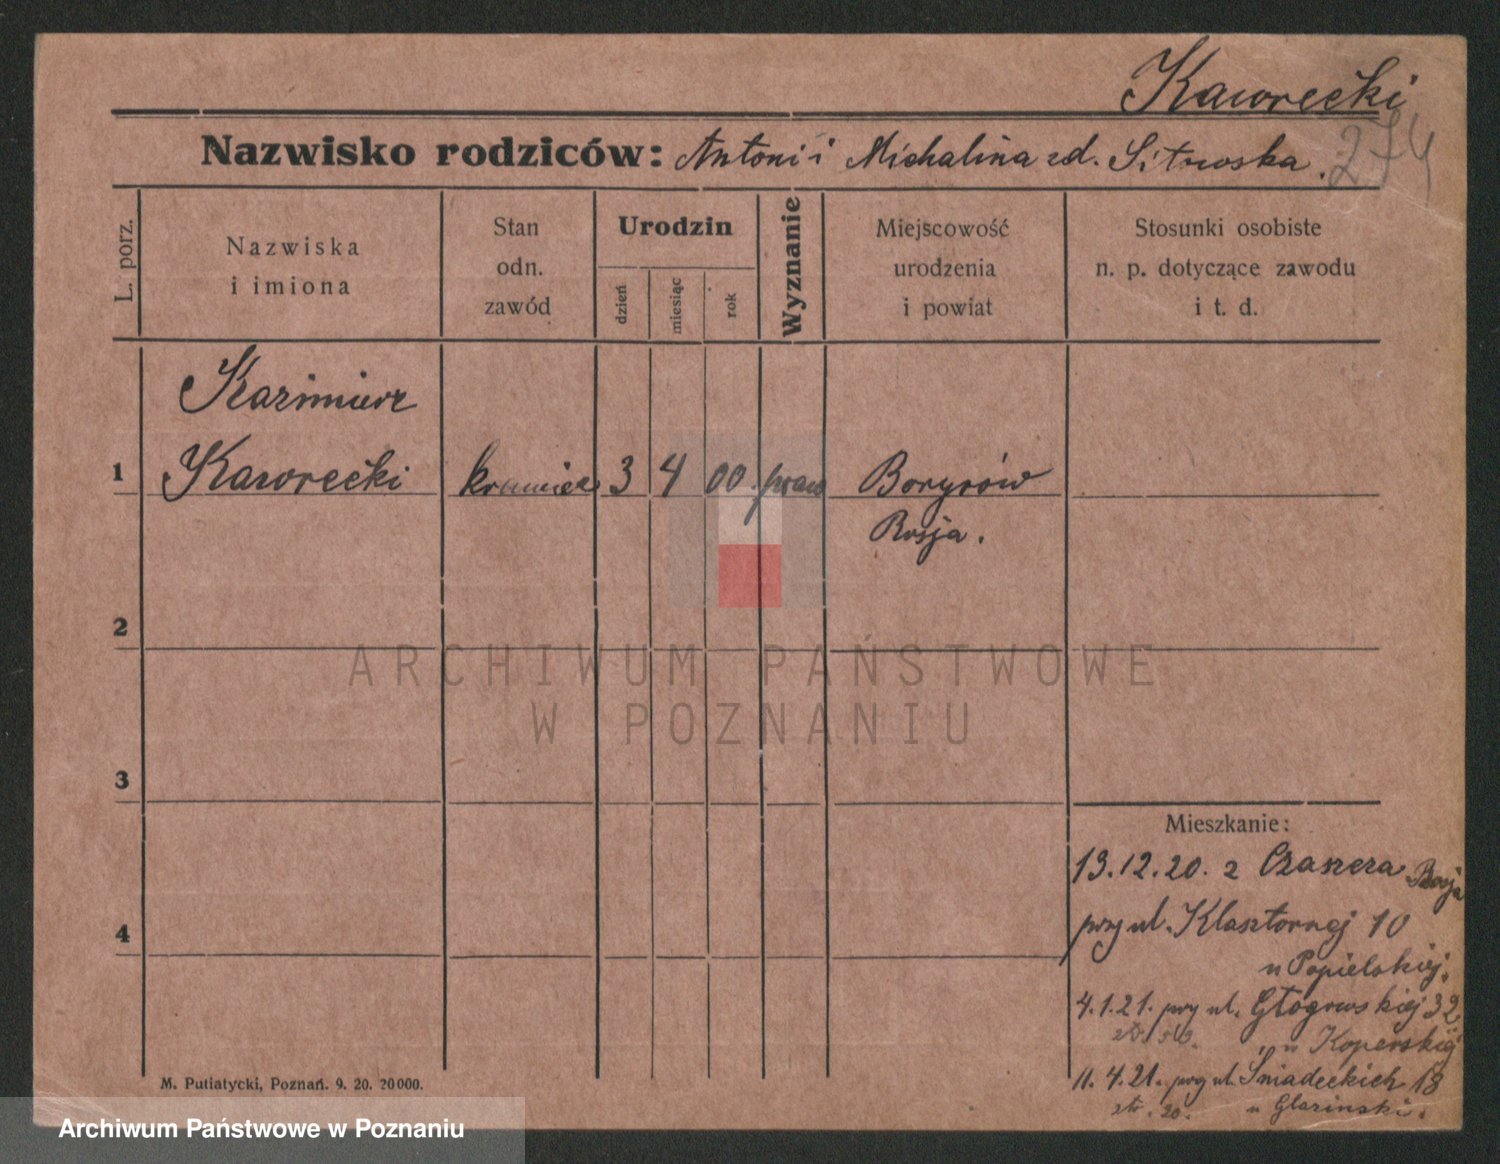 Kaworecki
274
Nazwisko rodziców: Antoni i Michalina zd. Sitwoska.
L. porz.
Nazwiska
i imiona
Stan
odn.
zawód
Urodzin
dzień
miesiąc
rok
Wyznanie
Miejscowość
urodzenia
i powiat
Stosunki osobiste
n. p. dotyczące zawodu
i t. d.
Kazimierz
1 Kaworecki 3 4 00 praw Borysów
Rosja.
2
3
4
ARCHIWUM PAŃSTWOWE
W POZNANIU
Mieszkanie:
13.12.20. z Rosja
przy ul. Klasztornej 10
u Popielskiej.
4.1.21. przy ul. Głogowskiej 32
u Koperskiej
11.4.21. przy ul. Śniadeckich 18
20. u Glazinski.
M. Putiatycki, Poznań. 9. 20. 20000.
Archiwum Państwowe w Poznaniu